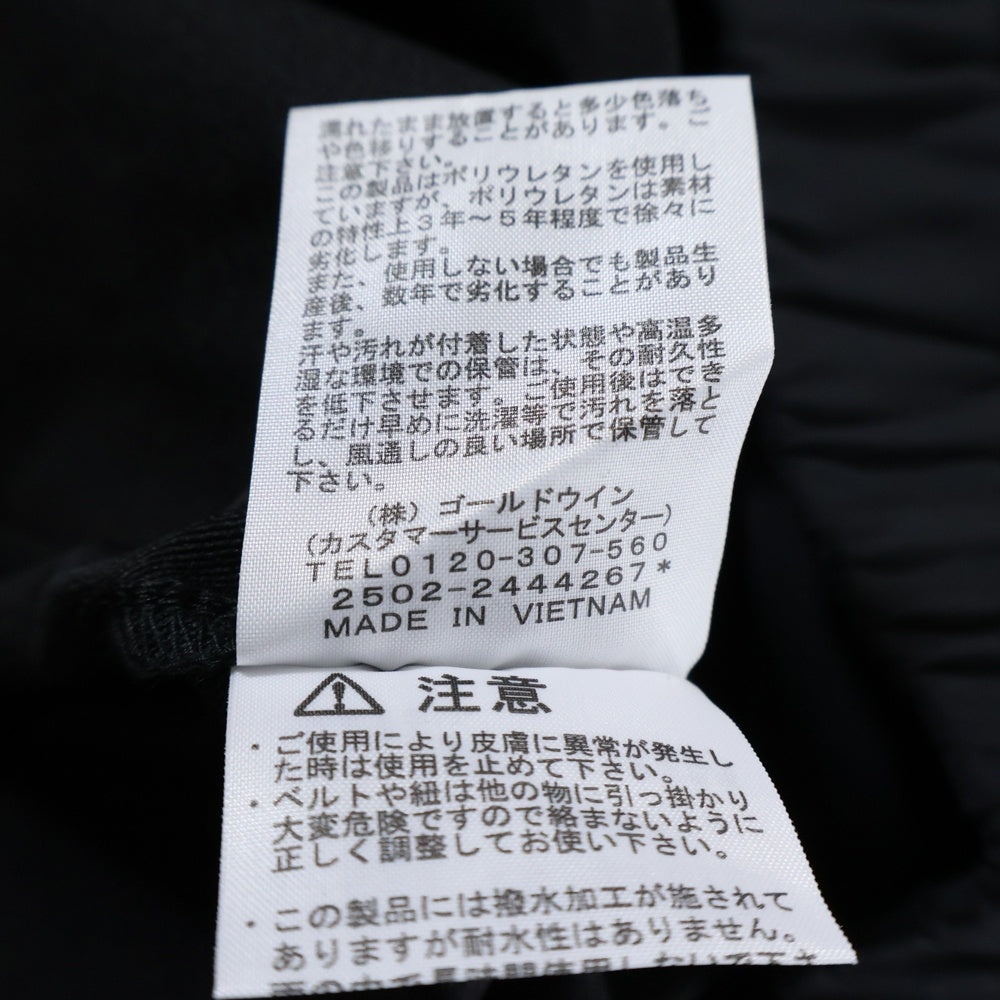 濡れたまま放置すると多少色落ち
や色移りすることがあります。ご
注意下さい。
この製品はポリウレタンを使用し
ていますが、ポリウレタンは素材
の特性上3年〜5年程度で徐々に
劣化します。
また、使用しない場合でも製品生
産後、数年で劣化することがあり
ます。
汗や汚れが付着した状態や高温多
湿な環境での保管は、その耐久性
を低下させます。ご使用後はでき
るだけ早めに洗濯等で汚れを落と
し、風通しの良い場所で保管して
下さい。
(株)ゴールドウイン
(カスタマーサービスセンター)
TEL0120-307-560
2502-2444267*
MADE IN VIETNAM
⚠ 注意
・ご使用により皮膚に異常が発生し
た時は使用を止めて下さい。
・ベルトや紐は他の物に引っ掛かり
大変危険ですので絡まないように
正しく調整してお使い下さい。
・この製品には撥水加工が施されて
ありますが耐水性はありません。
雨の中で長時間使用しないで下さ